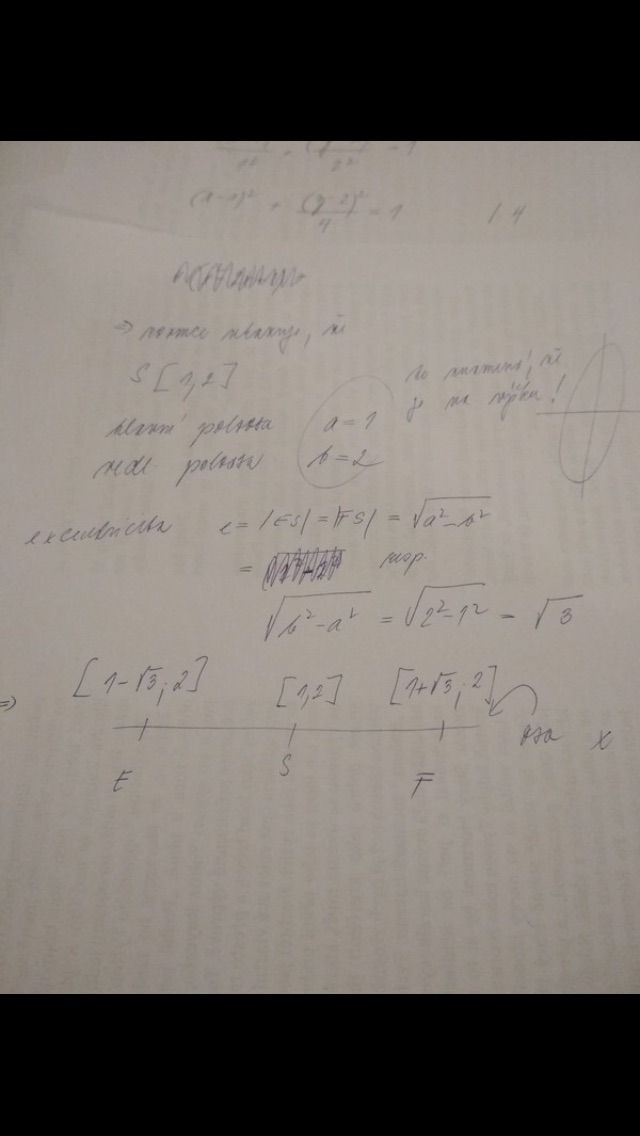 1² + 2² = 1
(x-1)² + (y-2)²/4 = 1 / 4
=> rovnice ukazuje, že
S [1,2]
hlavní poloosa a = 1
vedl. poloosa b = 2
to znamená, že
je na výšku!
excentricita e = |ES| = |FS| = √(a²-b²)
= resp.
√(b²-a²) = √(2²-1²) = √3
=> [1-√3; 2] [1,2] [1+√3; 2]
osa x
E S F